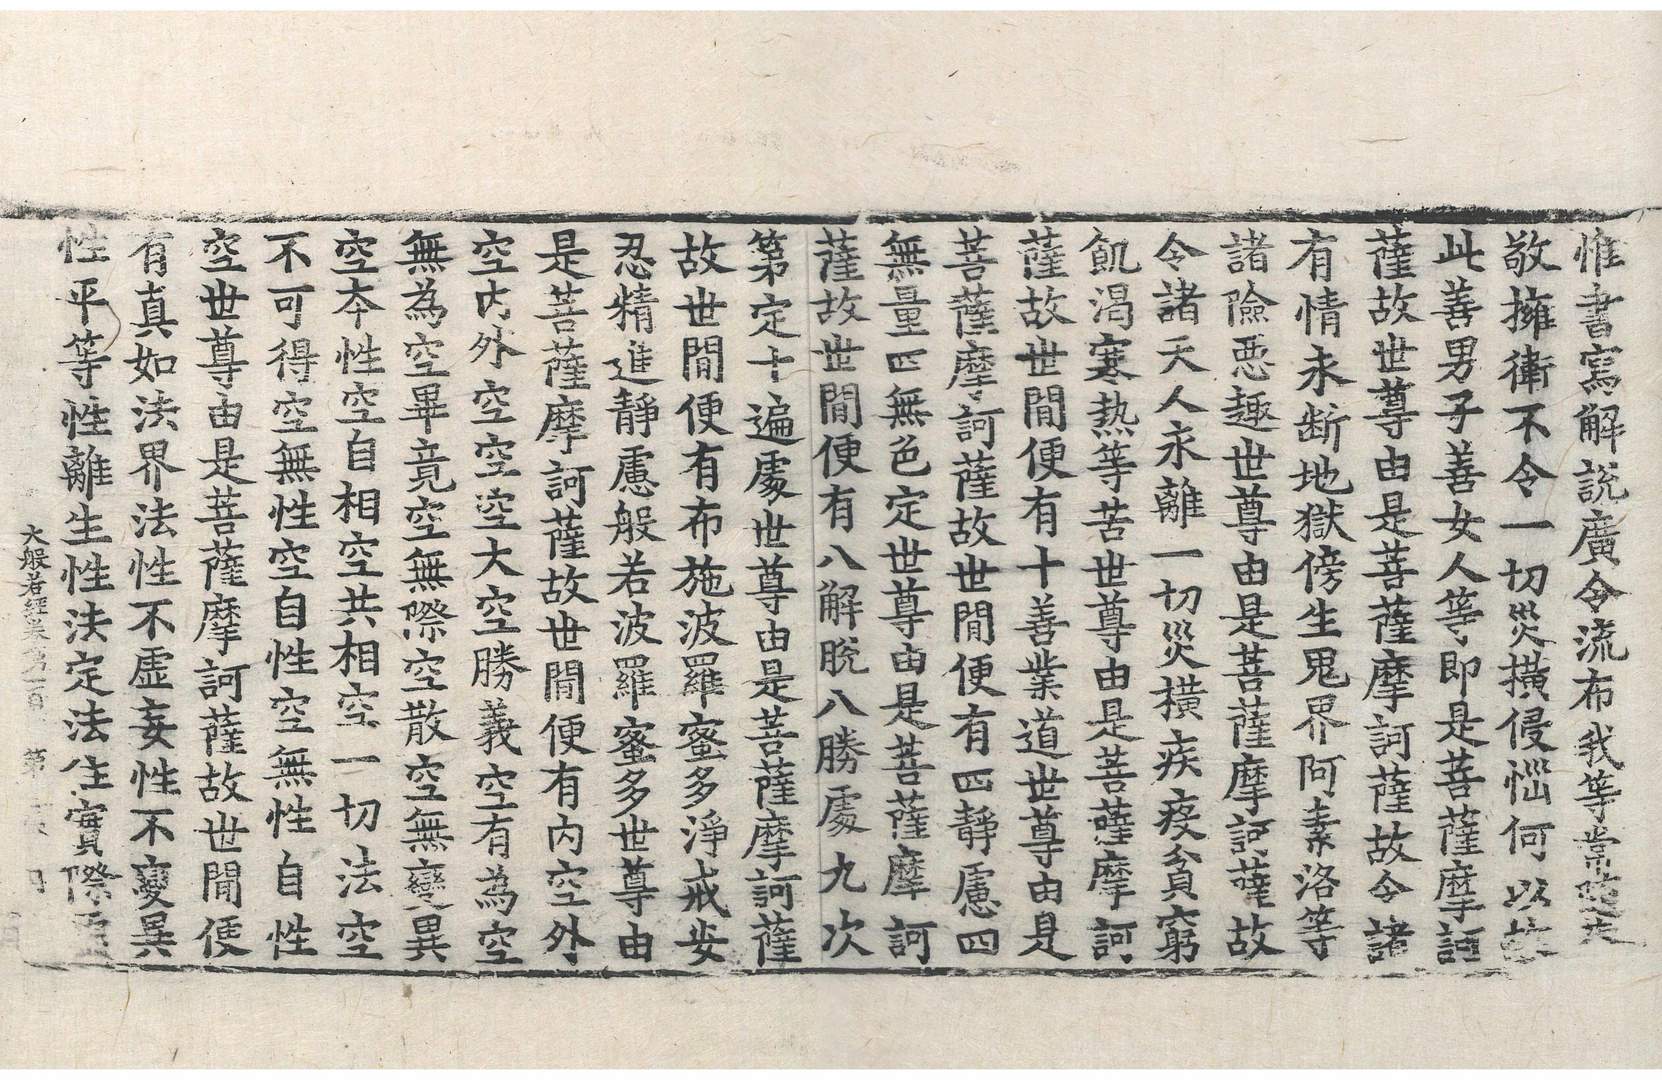 惟書寫解說廣令流布我等常隨恭
敬擁衛不令一切災橫侵惱何以故
此善男子善女人等即是菩薩摩訶
薩故世尊由是菩薩摩訶薩故令諸
有情永断地獄傍生鬼界阿素洛等
諸險惡趣世尊由是菩薩摩訶薩故
令諸天人永離一切災橫疾疫貧窮
飢渴寒熱等苦世尊由是菩薩摩訶
薩故世間便有十善業道世尊由是
菩薩摩訶薩故世間便有四靜慮四
無量四無色定世尊由是菩薩摩訶
薩故世間便有八解脫八勝處九次
第定十遍處世尊由是菩薩摩訶薩
故世間便有布施波羅蜜多淨戒安
忍精進靜慮般若波羅蜜多世尊由
是菩薩摩訶薩故世間便有內空外
空內外空空空大空勝義空有為空
無為空畢竟空無際空散空無變異
空本性空自相空共相空一切法空
不可得空無性空自性空無性自性
空世尊由是菩薩摩訶薩故世間便
有真如法界法性不虛妄性不變異
性平等性離生性法定法住實際虛
大般若經卷第一百 第 張